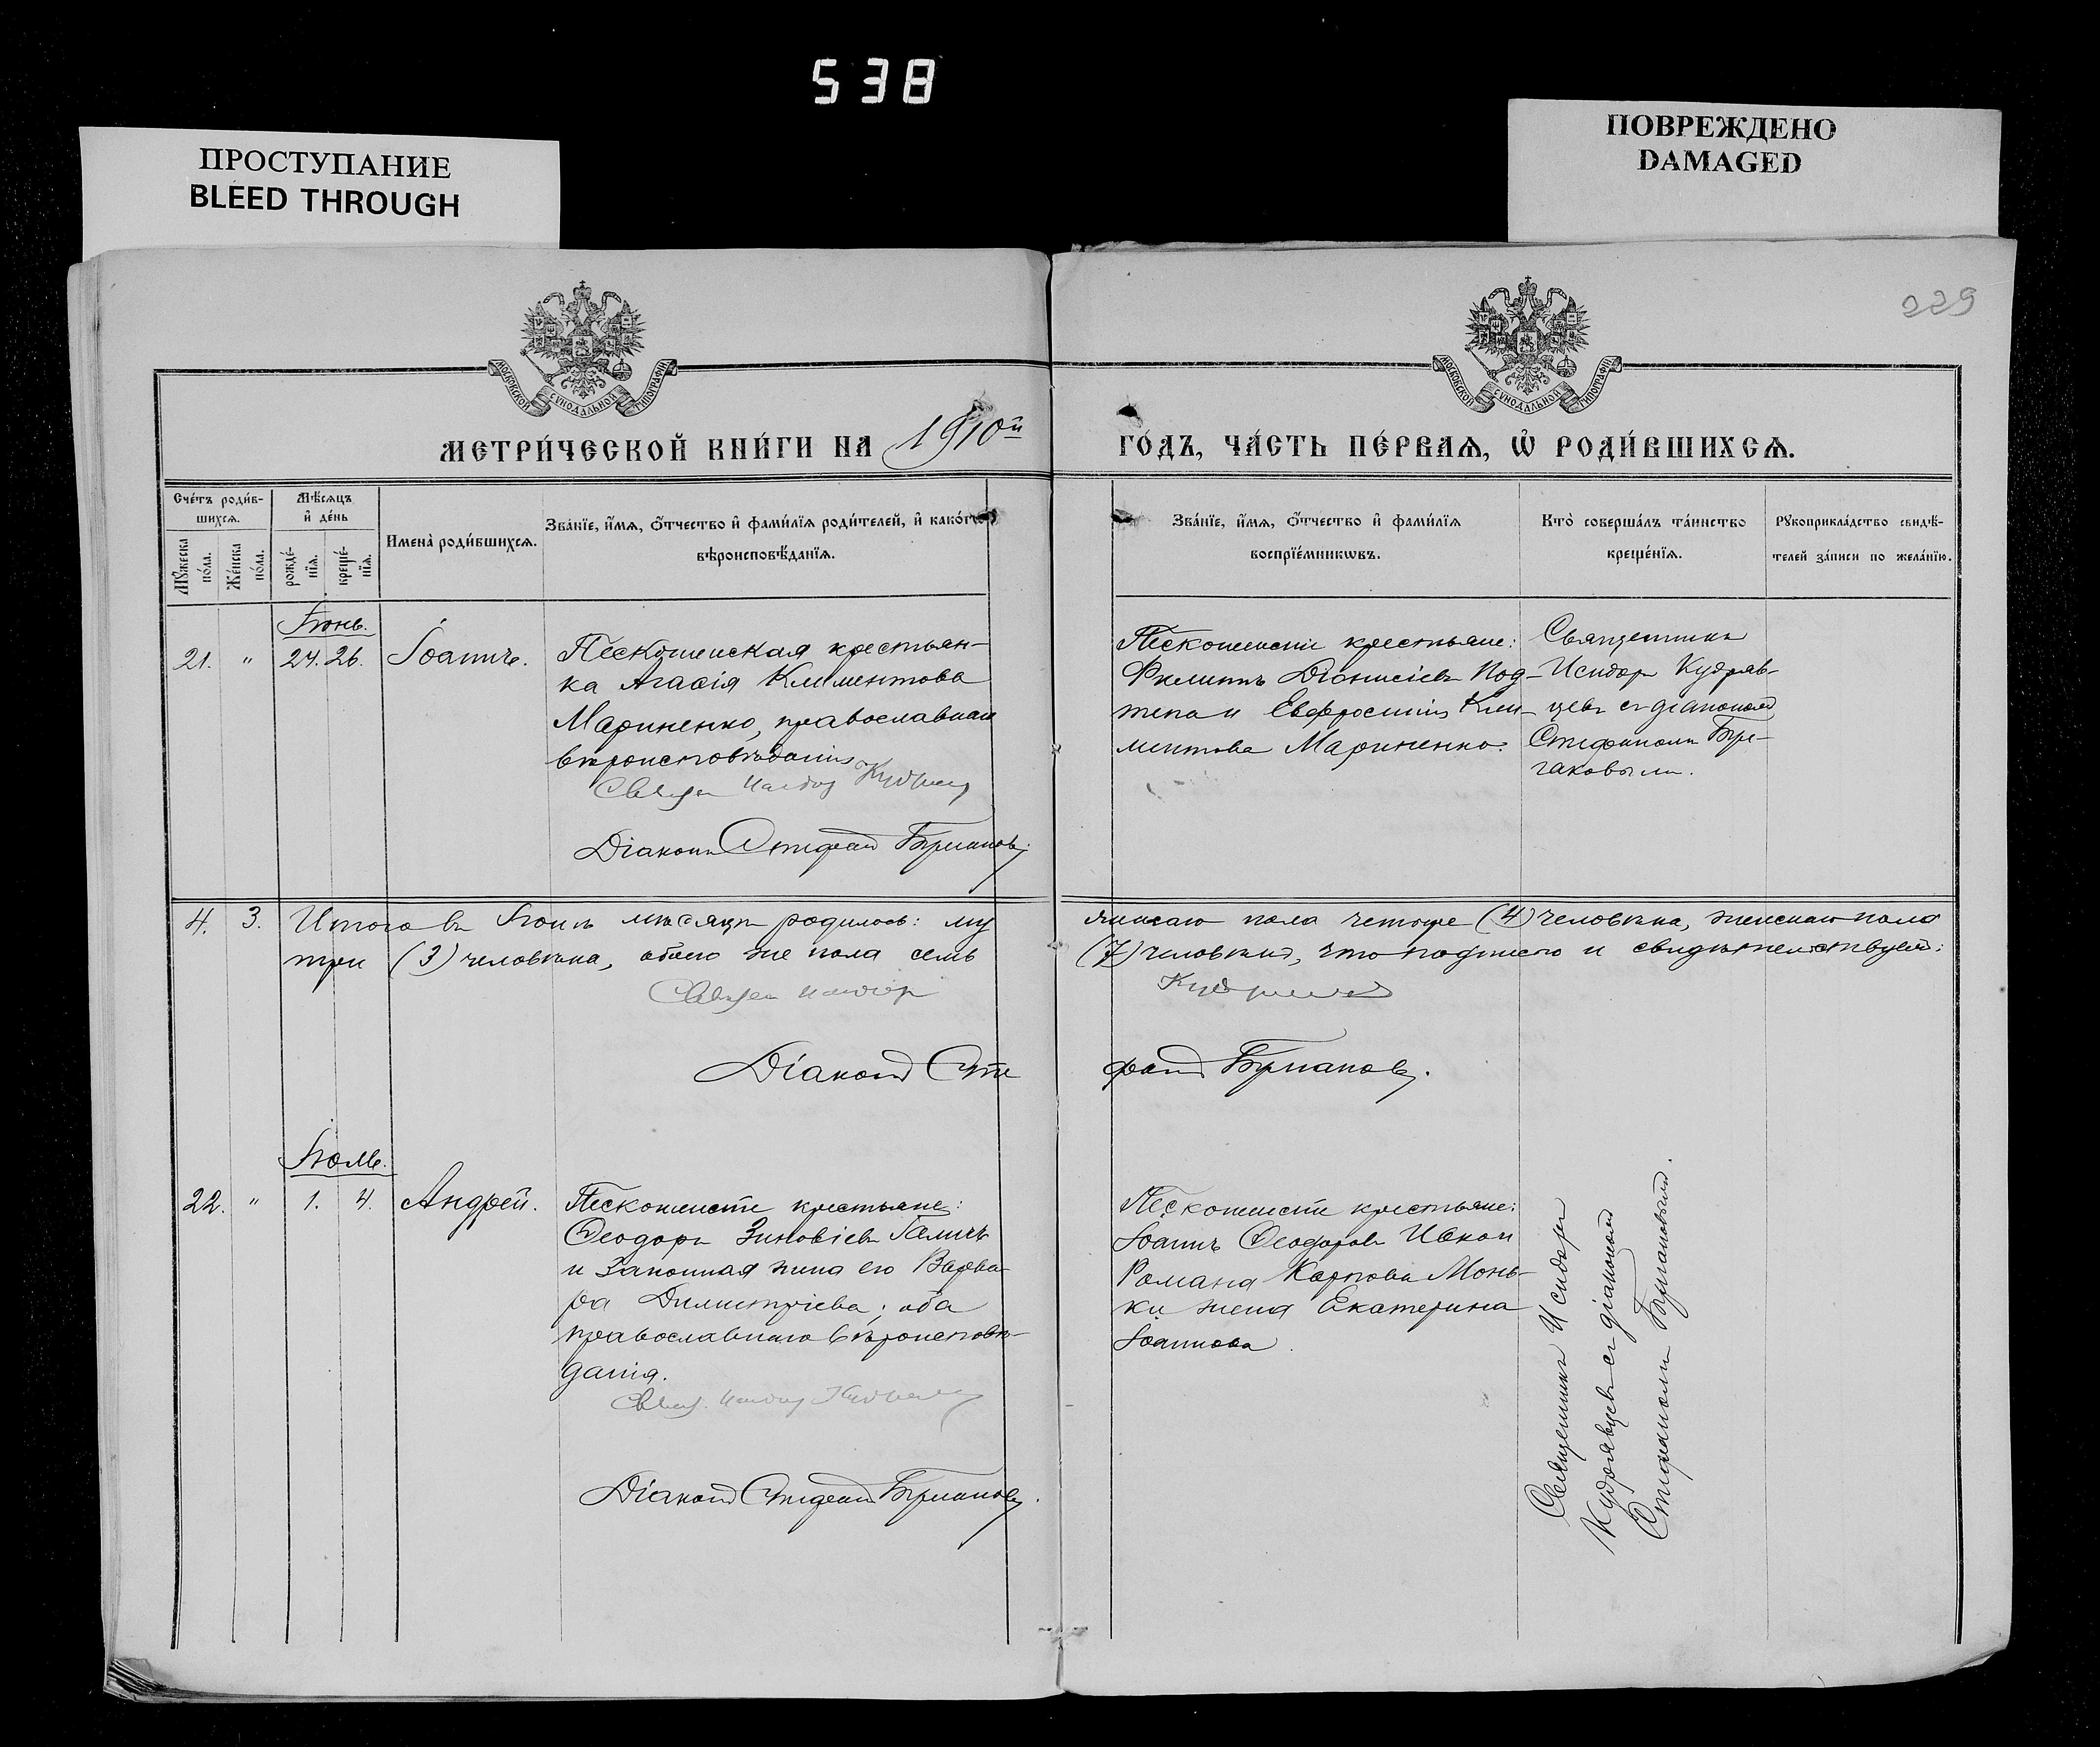 538
ПРОСТУПАНИЕ
BLEED THROUGH
ПОВРЕЖДЕНО
DAMAGED
229
МОСКОВСКОЙ СѴНОДАЛЬНОЙ ТИПОГРАФІИ
МОСКОВСКОЙ СѴНОДАЛЬНОЙ ТИПОГРАФІИ
МЕТРИ́ЧЕСКОЙ КНИ́ГИ НА 1910й
ГО́ДЪ, ЧА́СТЬ ПЕ́РВАѦ, Ѡ҆ РОДИ́ВШИХСѦ.
Сче́тъ роди́в-
шихсѧ.
Мѣ́сѧцъ
и҆ де́нь
Мꙋ́жеска по́ла.
Же́нска по́ла.
рожде́-нїѧ.
креще́-нїѧ.
Имена̀ роди́вшихсѧ.
Зва́нїе, и҆́мѧ, ѻ҆́тчество и҆ фами́лїѧ роди́телей, и҆ како́гѡ
вѣроисповѣ́данїѧ.
Зва́нїе, и҆́мѧ, ѻ҆́тчество и҆ фами́лїѧ
воспрїе́мникѡвъ.
Кто̀ соверша́лъ та́инство
креще́нїѧ.
Рꙋкоприкла́дство свидѣ́-
телей за́писи по жела́нїю.
Іюнь.
21. " 24. 26. Іоаннъ.
Пескошинская крестьян-
ка Агафія Климентова
Мариненко, православнаго
вѣроисповѣданія
Священ Исидор Кудрявц
Діаконъ Стефанъ
Пескошинскіе крестьяне:
Филиппъ Діонисіевъ Под-
и Евфросинія Кли-
ментова Мариненко.
Священникъ
Исидоръ Кудряв-
цевъ съ діакономъ
Стефаномъ
4. 3. Итого въ Іюнѣ мѣсяцѣ родилось: му
жескаго пола четыре (4) человѣка, женскаго пола
три (3) человѣка, обоего же пола семь
(7) человѣкъ, что подписью и свидѣтельствуемъ:
Священ Исидор
Кудрявцевъ
Діаконъ Сте
фанъ
Іюль.
22. " 1. 4. Андрей.
Пескошинскіе крестьяне:
Ѳеодоръ Зиновіевъ Галичъ
и законная жена его Варва-
ра Димитріева; оба
православнаго вѣроисповѣ-
данія.
Свящ. Исидор Кудрявц
Діаконъ Стефанъ
Пескошинскіе крестьяне:
Іоаннъ Ѳеодоровъ
Романа Карпова Монь-
ки жена Екатерина
Іоаннова.
Священникъ Исидоръ
Кудрявцевъ съ діакономъ
Стефаномъ